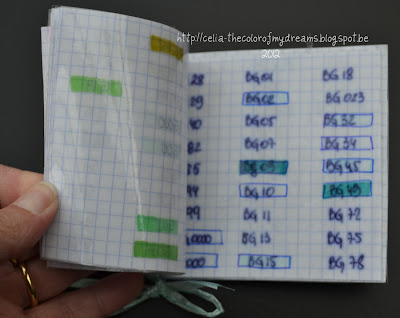 http://celia-thecolorofmydreams.blogspot.be
2012
28 BG01 BG18
29 BG02 BG023
40 BG05 BG32
82 BG07 BG34
BG09 BG45
94 BG10 BG49
99 BG11 BG72
0000 BG13 BG75
BG15 BG78